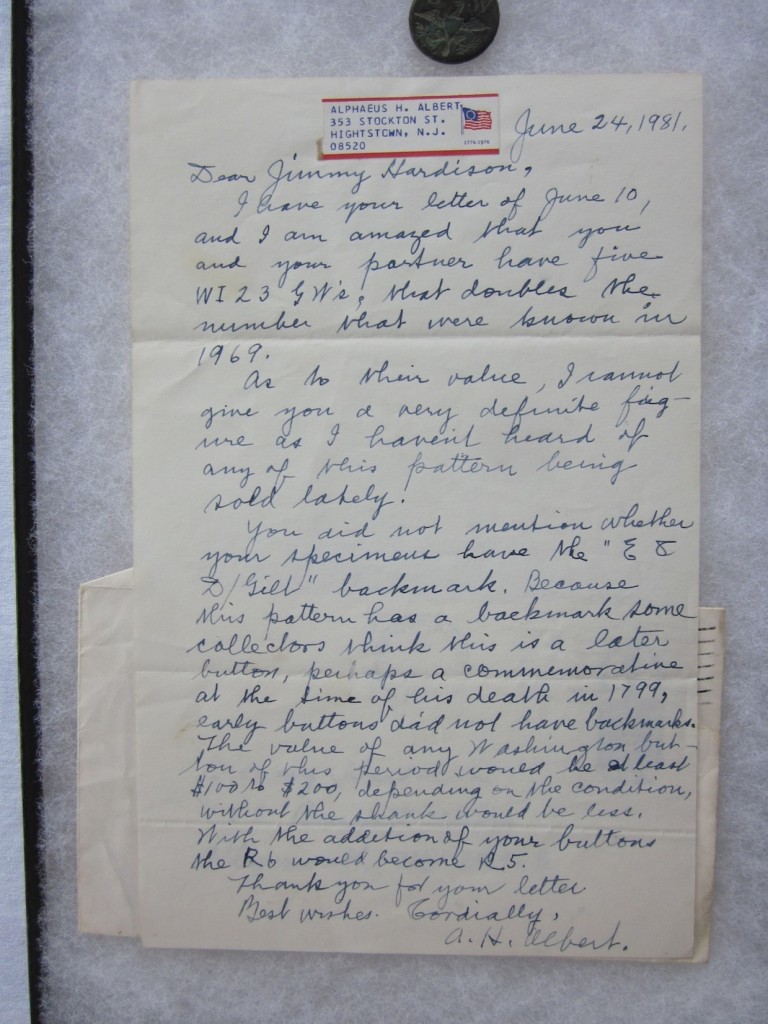 ALPHAEUS H. ALBERT
353 STOCKTON ST.
HIGHTSTOWN, N.J.
08520
1776-1976
June 24, 1981.
Dear Jimmy Hardison,
I have your letter of June 10,
and I am amazed that you
and your partner have five
WI 23 GW's, that doubles the
number that were known in
1969.
As to their value, I cannot
give you a very definite fig-
ure as I haven't heard of
any of this pattern being
sold lately.
You did not mention whether
your specimens have the "E &
D/Gilt" backmark. Because
this pattern has a backmark some
collectors think this is a later
button, perhaps a commemorative
at the time of his death in 1799,
early buttons did not have backmarks.
The value of any Washington but-
ton of this period would be at least
$100 to $200, depending on the condition,
without the shank would be less.
With the addition of your buttons
the R6 would become R5.
Thank you for your letter
Best wishes. Cordially,
A. H. Albert.